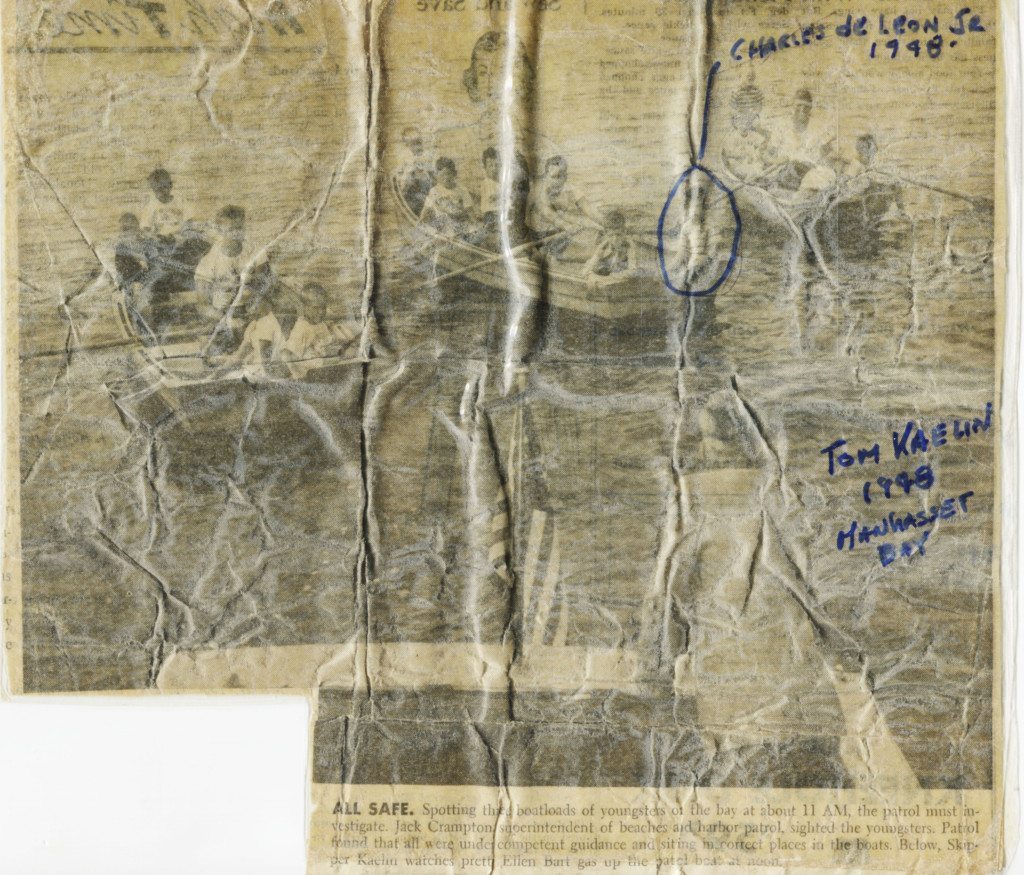 CHARLES de LEON JR
1948.
TOM KAELIN
1948
MANHASSET
BAY
ALL SAFE. Spotting three boatloads of youngsters on the bay at about 11 AM, the patrol must in-
vestigate. Jack Crampton, superintendent of beaches and harbor patrol, sighted the youngsters. Patrol
found that all were under competent guidance and siting in correct places in the boats. Below, Skip-
per Kaelin watches pretty Ellen Bart gas up the patrol boat at noon.